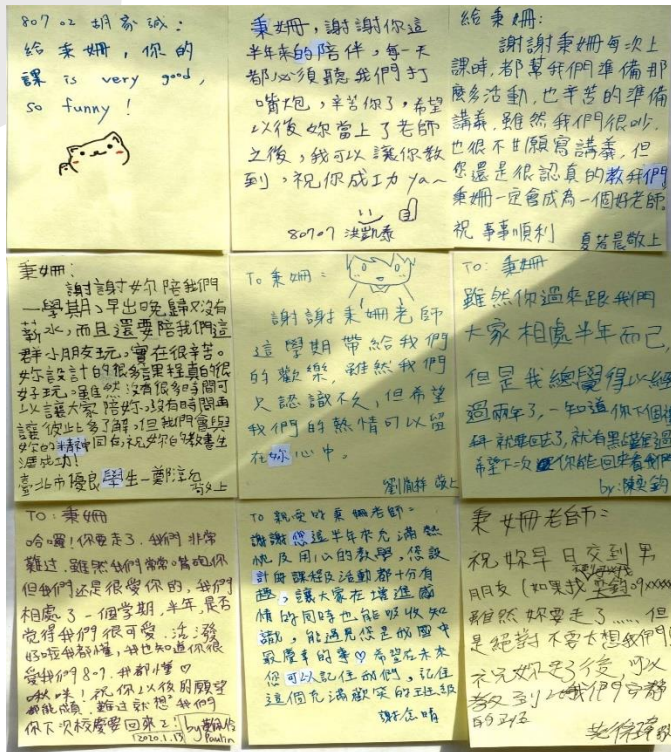 807 02 胡家誠：
給秉姍，你的
課 is very good,
so funny !
秉姍，謝謝你這
半年來的陪伴，每一天
都必須聽我們打
嘴炮，辛苦你了，希望
以後妳當上了老師
之後，我可以讓你教
到，祝你成功 ya~
80707 洪凱泰
給秉姍：
謝謝秉姍每次上
課時，都幫我們準備那
麼多活動，也辛苦的準備
講義，雖然我們很吵，
也很不甘願寫講義，但
您還是很認真的教我們
秉姍一定會成為一個好老師
祝 事事順利
夏若晨敬上
秉姍：
謝謝妳陪我們
一學期、早出晚歸又沒有
薪水，而且還要陪我們這
群小朋友玩，實在很辛苦。
妳設計的很多課程真的很
好玩。雖然沒有很多時間可
以讓大家陪妳、沒有時間再
讓彼此多了解，但我們會與
妳的精神同在，祝妳的教書生
涯成功！
臺北市優良學生—鄭淳
敬上
To 秉姍：
謝謝秉姍老師
這學期帶給我們
的歡樂，雖然我們
才認識不久，但希望
我們的熱情可以留
在妳心中。
敬上
TO: 秉姍
雖然你過來跟我們
大家相處半年而已，
但是我總覺得以經
過兩年了，一知道你下個禮
拜就要回去了，就有點
希望下次你能回來看我們
by: 陳奕鈞
TO: 秉姍
哈囉！你要走了，我們非常
難過，雖然我們常常嘴砲你
但我們還是很愛你的，我們
相處了一個學期，半年，是否
覺得我們很可愛、活潑
好啦我都懂，我也知道你很
愛我們807，我都懂♡
啾咪！祝你以後的願望
都能成真，難過就想我們
你下次校慶要回來2！
by
Paulin
(2020.1.13)
TO 親愛的秉姍老師：
謝謝您這半年來充滿熱
忱及用心的教學，您設
計的課程及活動都十分有
趣，讓大家在增進感
情的同時也能吸收知
識，能遇見您是我國中
最慶幸的事♡希望在未來
您可以記住我們，記住
這個充滿歡笑的班級
謝念晴
秉姍老師：
祝妳早日交到男
朋友（如果
雖然妳要走了……但
是絕對不要太想我們！
祝妳走了後，可以
教到比我們安靜
的班